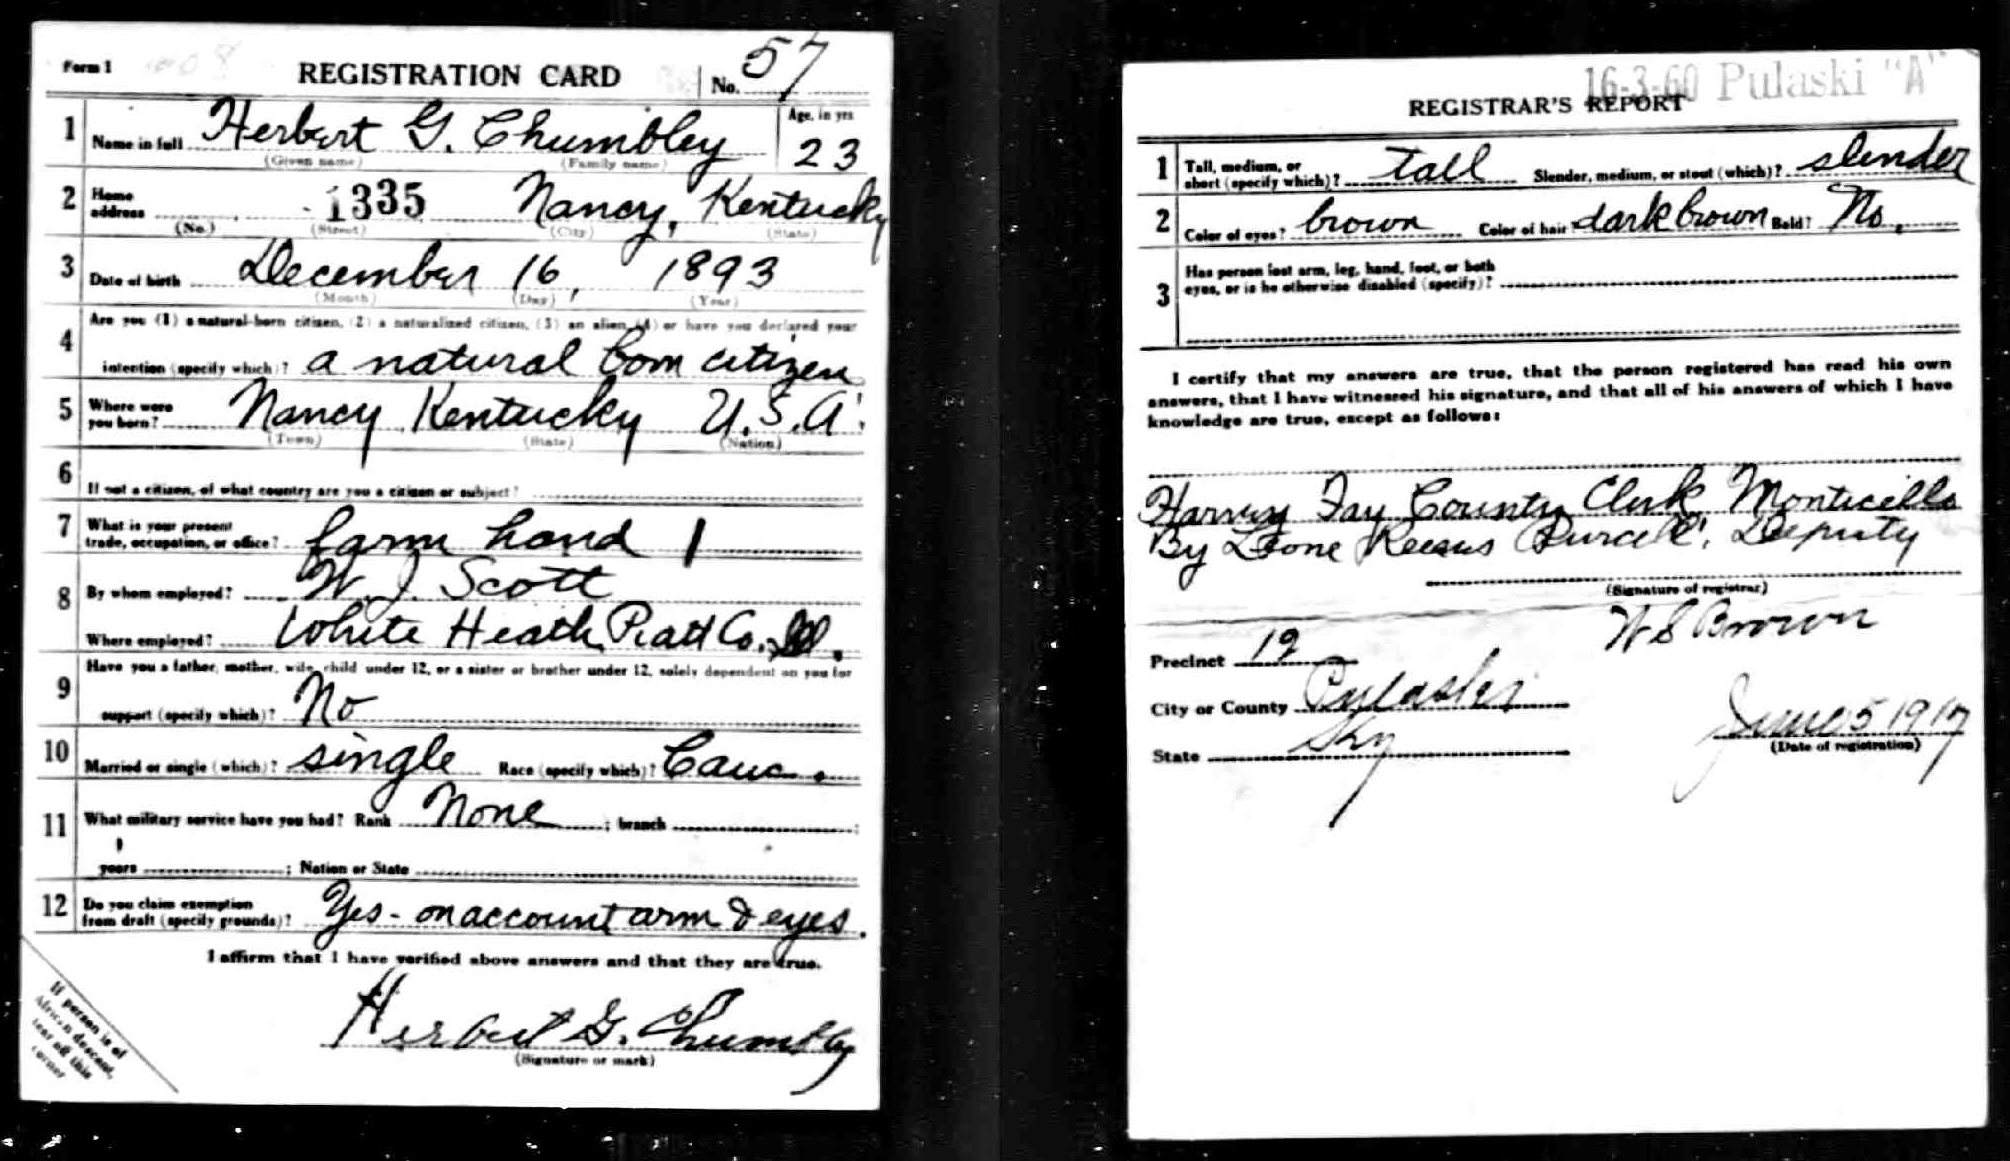 Form 1
REGISTRATION CARD
No. 57
1 Name in full Herbert G. Chumbley
(Given name) (Family name)
Age, in yrs
23
2 Home address 1335 Nancy, Kentucky
(No.) (Street) (City) (State)
3 Date of birth December 16, 1893
(Month) (Day) (Year)
4 Are you (1) a natural-born citizen, (2) a naturalized citizen, (3) an alien, (4) or have you declared your
intention (specify which)? a natural born citizen
5 Where were you born? Nancy Kentucky U.S.A.
(Town) (State) (Nation)
6 If not a citizen, of what country are you a citizen or subject?
7 What is your present trade, occupation, or office? farm hand 1
8 By whom employed? W. J. Scott
Where employed? White Heath Piatt Co., Ill.
9 Have you a father, mother, wife, child under 12, or a sister or brother under 12, solely dependent on you for
support (specify which)? No
10 Married or single (which)? single Race (specify which)? Cauc.
11 What military service have you had? Rank None ; branch ;
years ; Nation or State
12 Do you claim exemption from draft (specify grounds)? Yes - on account arm & eyes.
I affirm that I have verified above answers and that they are true.
Herbert G. Chumbley
(Signature or mark)
If person is of
African descent,
tear off this
corner
16-3-60 Pulaski "A"
REGISTRAR'S REPORT
1 Tall, medium, or short (specify which)? tall Slender, medium, or stout (which)? slender
2 Color of eyes? brown Color of hair dark brown Bald? No.
3 Has person lost arm, leg, hand, foot, or both
eyes, or is he otherwise disabled (specify)?
I certify that my answers are true, that the person registered has read his own
answers, that I have witnessed his signature, and that all of his answers of which I have
knowledge are true, except as follows:
County Clerk Monticello
By Leone Deputy
(Signature of registrar)
W S Brown
Precinct 12
City or County Pulaski
State Ky
June 5 1917
(Date of registration)